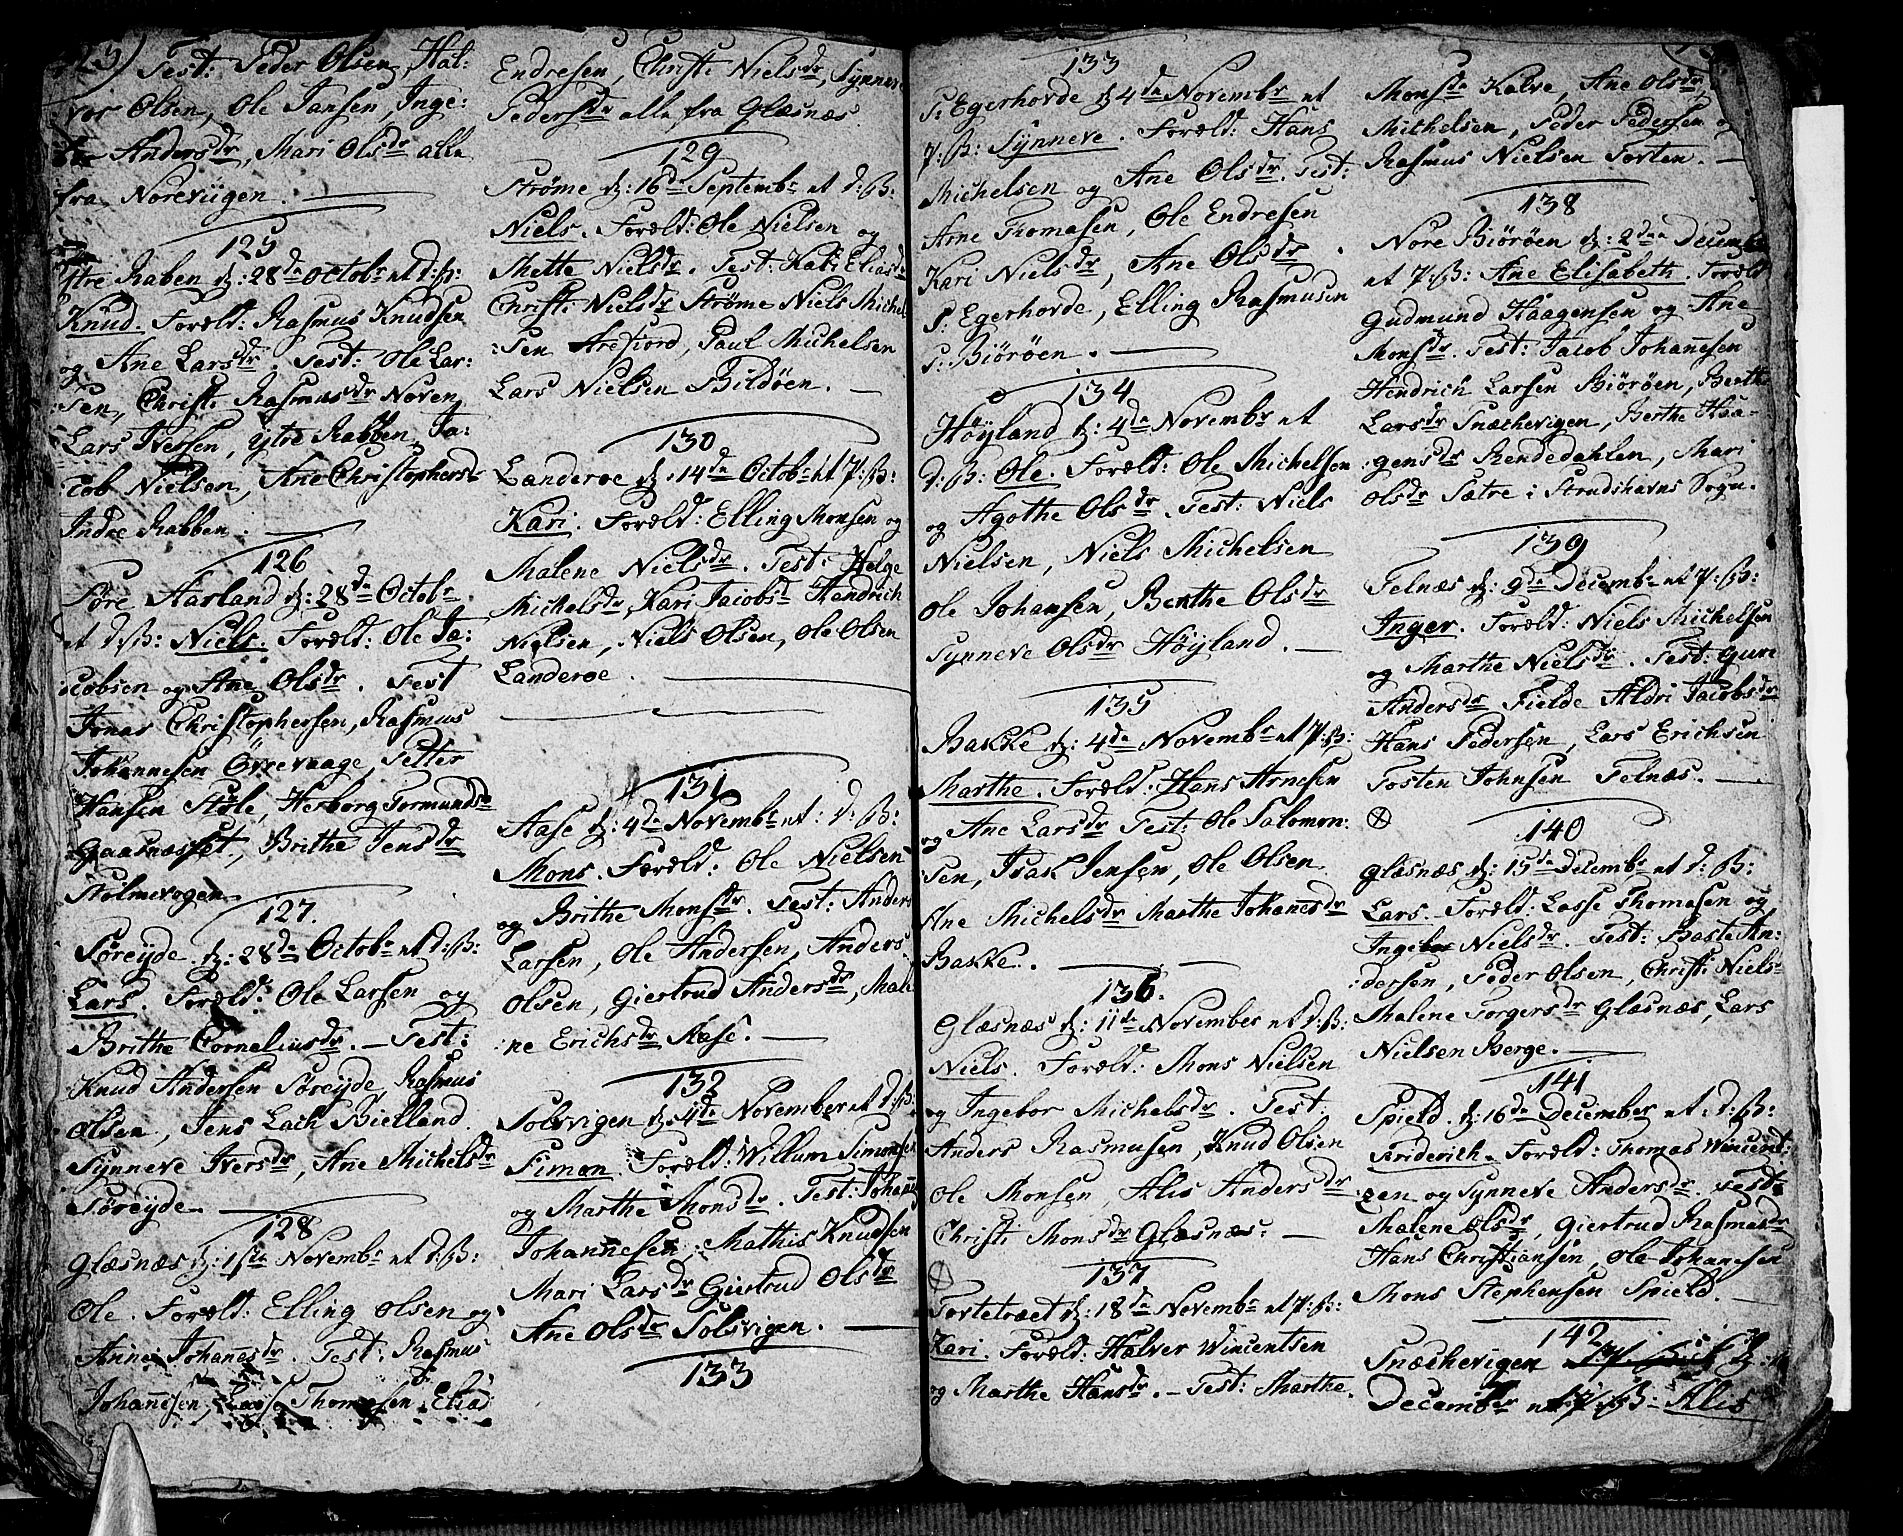 Test: Peder Olsen, Hal:
vor Olsen, Ole Jansen, Inge:
bor Andersdr, Mari Olsdr alle
fra Noreviigen.
125
Ytre Raben d: 28de Octobr et d: B:
Knud. Foræld: Rasmus Knudsen
og Ane Larsdr. Test: Ole Lar:
sen, Christi Rasmusdr Noven,
Lars Iversen, Ytre Rabben, Ja:
cob Nielsen, Ane Christophersd
Indre Rabben.
126
Søre Aarland d: 28de Octobr.
et d: B: Niels. Foræld: Ole Ja:
cobsen og Ane Olsdr. Test
Jonas Christophersen, Rasmus
Johannesen Öfrevaage, Petter
Hansen Støle, Herborg Tormundsdr
Gaasnæsset, Brithe Jensdr
Stolmevogen
127.
Søreyde d: 28de Octobr et d: B:
Lars. Foræld: Ole Larsen og
Brithe Corneliusdr. Test:
Knud Andersen Søreyde, Rasmus
Olsen, Jens Lach Bielland
Synneve Iversdr, Ane Michelsdr
Søreyde.
128
Glæsnæs d: 1ste Novembr et d: B:
Ole. Foræld: Elling Olsen og
Anne Johanesdr. Test: Rasmus
Johannesen, Lasse Thomasen, Eliad
Endresen, Christi Nielsdr, Synneve
Pedersdr alle fra Glæsnæs
129
Strøme d: 16de Septembr et d: B:
Niels. Foræld: Ole Nielsen og
Mette Nielsdr. Test: Kari Eliasdr
Christi Nielsdr Strøme Niels Michel
:sen Arefiord, Paul Michelsen
Lars Nielsen Bildøen.
130
Landerøe d: 14de Octobr et P: B:
Kari. Foræld: Elling Monsen og
Malene Nielsdr. Test: Helge
Michelsdr, Kari Jacobsd Hendrich
Nielsen, Niels Olsen, Ole Olsen
Landerøe.
131
Aase d: 4de Novembr et: d: B:
Mons. Foræld: Ole Nielsen
og Brithe Monsdr. Test: Anders
Larsen, Ole Andersen, Anders
Olsen, Giertrud Andersdr, Male
:ne Erichsdr Aase.
132
Solsvigen d: 4de November et d: B:
Simon. Foræld: Willum Simonsen
og Marthe Monsdr. Test: Johannes
Johannesen, Mathis Knudsen
Mari Larsdr Giertrud Olsdr
Ane Olsdr Solsvigen.
133
133
S: Egerhovde d: 4de Novembr et
P: B: Synneve. Foræld: Hans
Michelsen og Ane Olsdr. Test:
Arne Thomasen, Ole Endresen
Kari Nielsdr, Ane Olsdr
S: Egerhovde, Elling Rasmusen
S: Biørøen.
134
Høyland d: 4de Novembr et
d: B: Ole. Foræld: Ole Michelsen
og Agothe Olsdr. Test: Niels
Nielsen, Niels Michelsen
Ole Johansen, Berthe Olsdr
Synneve Olsdr Høyland.
135
Bakke d: 4de Novembr et P: B:
Marthe. Foræld: Hans Arnesen
og Ane Larsdr Test: Ole Salomon:
sen, Isak Jensen, Ole Olsen
Ane Michelsdr Marthe Johanesdr
Bakke.
136.
Glæsnæs d: 11de November et d: B:
Niels. Foræld: Mons Nielsen
og Ingebor Michelsdr. Test:
Anders Rasmusen, Knud Olsen
Ole Monsen, Alis Andersdr
Christi Monsdr Glæsnæs.
137
Tortetræet d: 18de Novembr et P: B:
Kari. Foræld: Halver Wincentsen
og Marthe Hansdr. Test: Marthe
Monsdr Kalve, Ane Olsdr,
Michelsen, Peder Pedersen
Rasmus Nielsen Torten.
138
Nore Biørøen d: 2den Decembr
et P: B: Ane Elisabeth. Foræld
Gudmund Haagensen og Ane
Monsdr. Test: Jacob Johanesen
Hendrich Larsen Biørøen, Berthe
Larsdr Snæchevigen, Berthe Haa-
:gensdr Rendedahlen, Mari
Olsdr Sætre i Strudshavns Sogn.
139
Telnæs d: 9de Decembr et P: B:
Inger. Foræld: Niels Michelsen
og Marthe Nielsdr. Test: Guri
Andersdr Fielde Aldri Jacobsdr
Hans Pedersen, Lars Erichsen
Tosten Johnsen Telnæs.
140
Glæsnæs d: 15de Decembr et d: B:
Lars. Foræld: Lasse Thomasen og
Ingebor Nielsdr. Test: Baste An:
:dersen, Peder Olsen, Christi Niels-
Malene Torgersdr Glæsnæs, Lars
Nielsen Berge.
141
Spield d: 16de December et d: B:
Friderich. Foræld: Thomas Wincent:
zen og Synneve Andersdr. Test:
Malene Olsdr, Giertrud Rasmusdr
Hans Christiansen, Ole Johanesen
Mons Stephensen Spield.
142
Snæchevigen d:
December et P: B: Alis